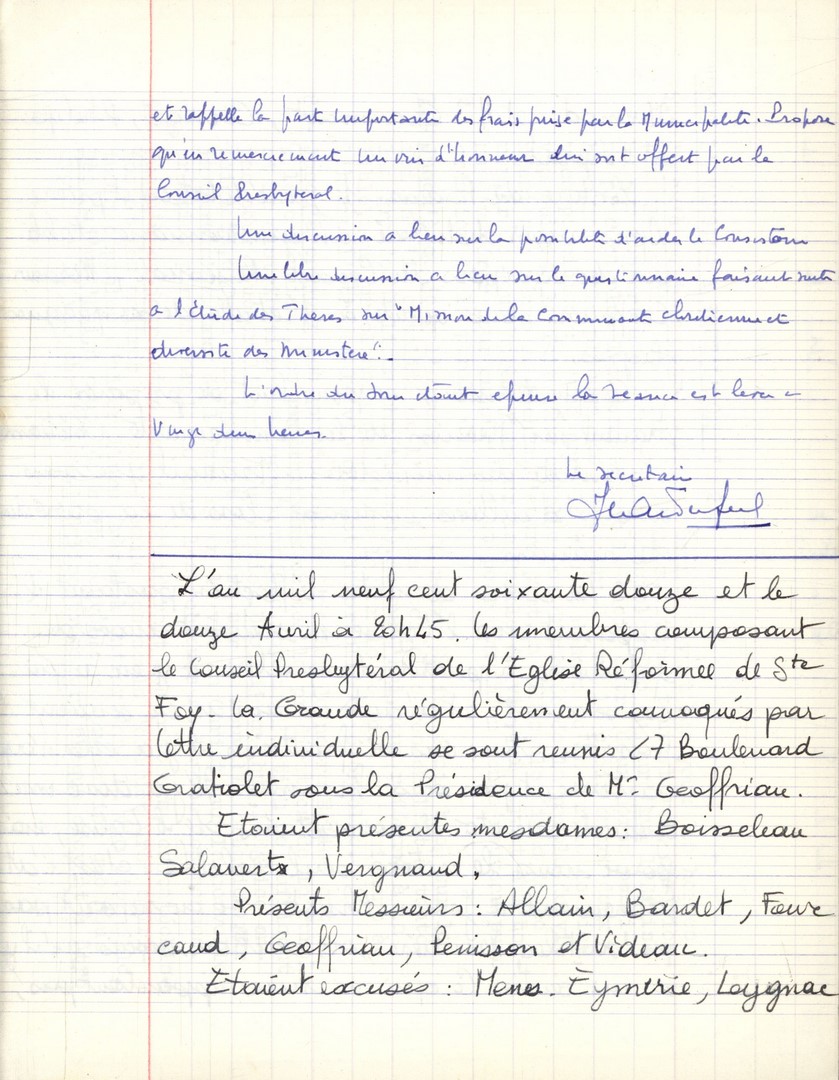 et rappelle la part importante des frais prise par la Municipalité. Propose
qu'en remerciement un vin d'honneur lui soit offert par le
Conseil Presbyteral.
Une discussion a lieu sur la possibilité d'aider le Consistoire
Une libre discussion a lieu sur le questionnaire faisant suite
a l'Etude des Theses sur "Mission de la Communauté chretienne et
diversité des Ministere".
L'ordre du Jour étant epuisé la seance est levée a
Vingt deux heures.
Le secretaire
L'an mil neuf cent soixante douze et le
douze Avril à 20h45. les membres composant
le Conseil Presbytéral de l'Eglise Réformée de Ste
Foy-la-Grande régulièrement convoqués par
lettre individuelle se sont reunis 47 Boulevard
Gratiolet sous la Présidence de Mr Geoffriau.
Etaient présentes mesdames: Boisseleau
Salavert, Vergnaud,
Présents Messieurs : Allain, Bardet, Four
caud, Geoffriau, Penisson et Videau.
Etaient excusés : Mmes. Eymerie, Loygnac